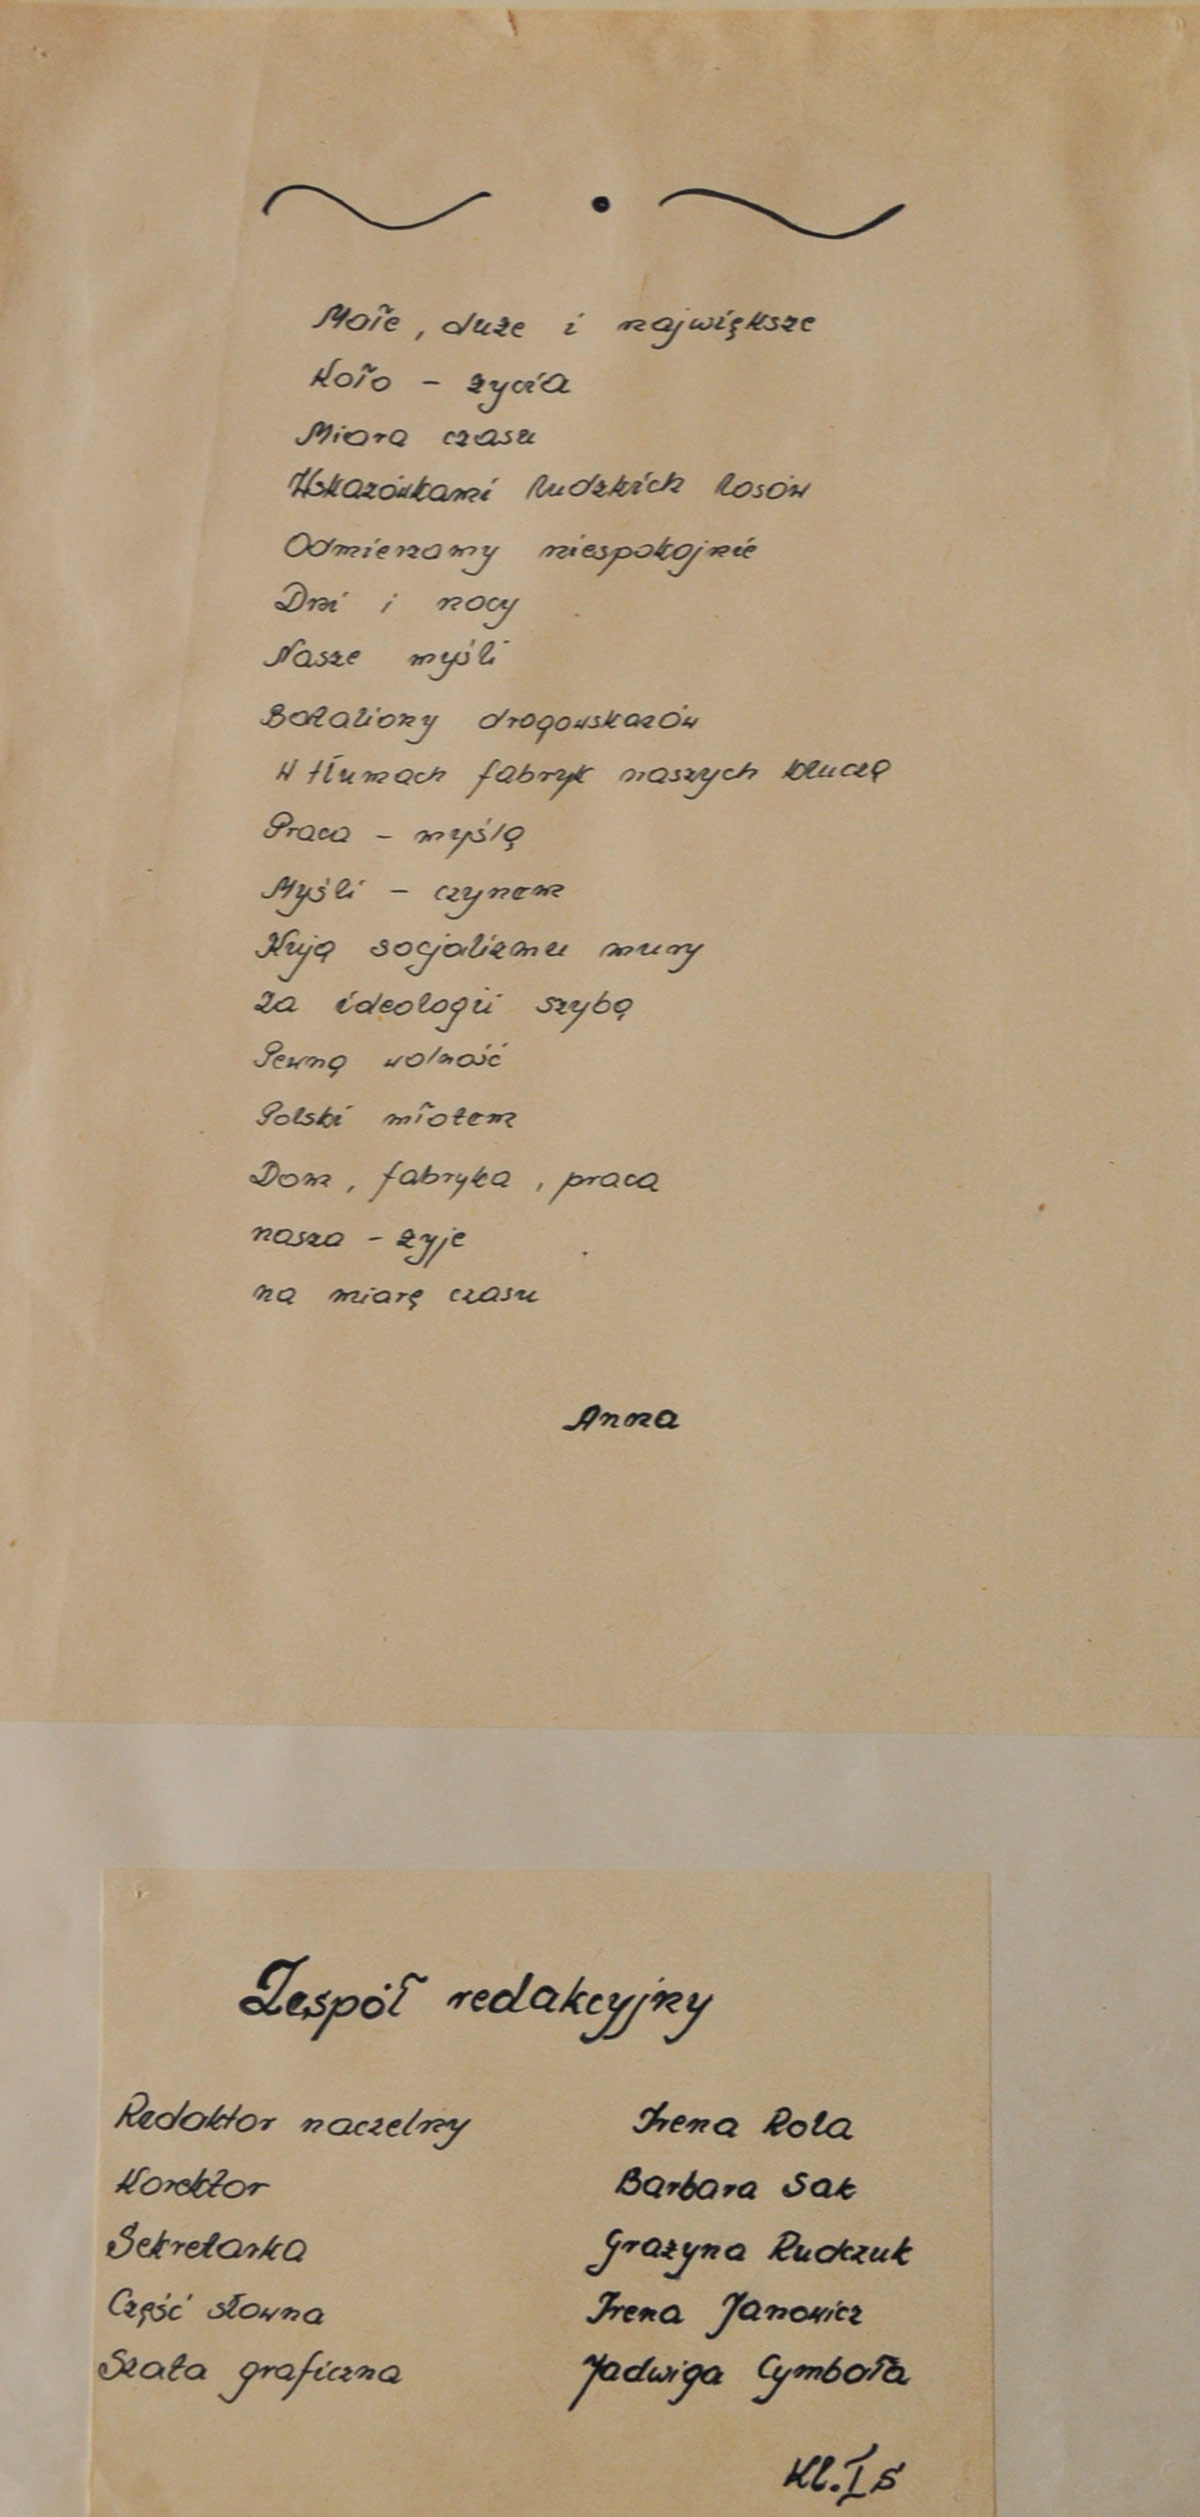 Małe, duże i największe
Koło - życia
Miara czasu
Wskazówkami ludzkich losów
Odmierzamy niespokojnie
Dni i nocy
Nasze myśli
Bataliony drogowskazów
W tłumach fabryk naszych kluczą
Praca - myślą
Myśli - czynem
Kują socjalizmu mury
Za ideologii szybą
Pewną wolność
Polski młotem
Dom, fabryka, praca
nasza - żyje
na miarę czasu
Anna
Zespół redakcyjny
Redaktor naczelny Irena Rola
Korektor Barbara Sak
Sekretarka Grażyna Rudczuk
Część słowna Irena Janowicz
Szata graficzna Jadwiga Cymbała
Kl. I S